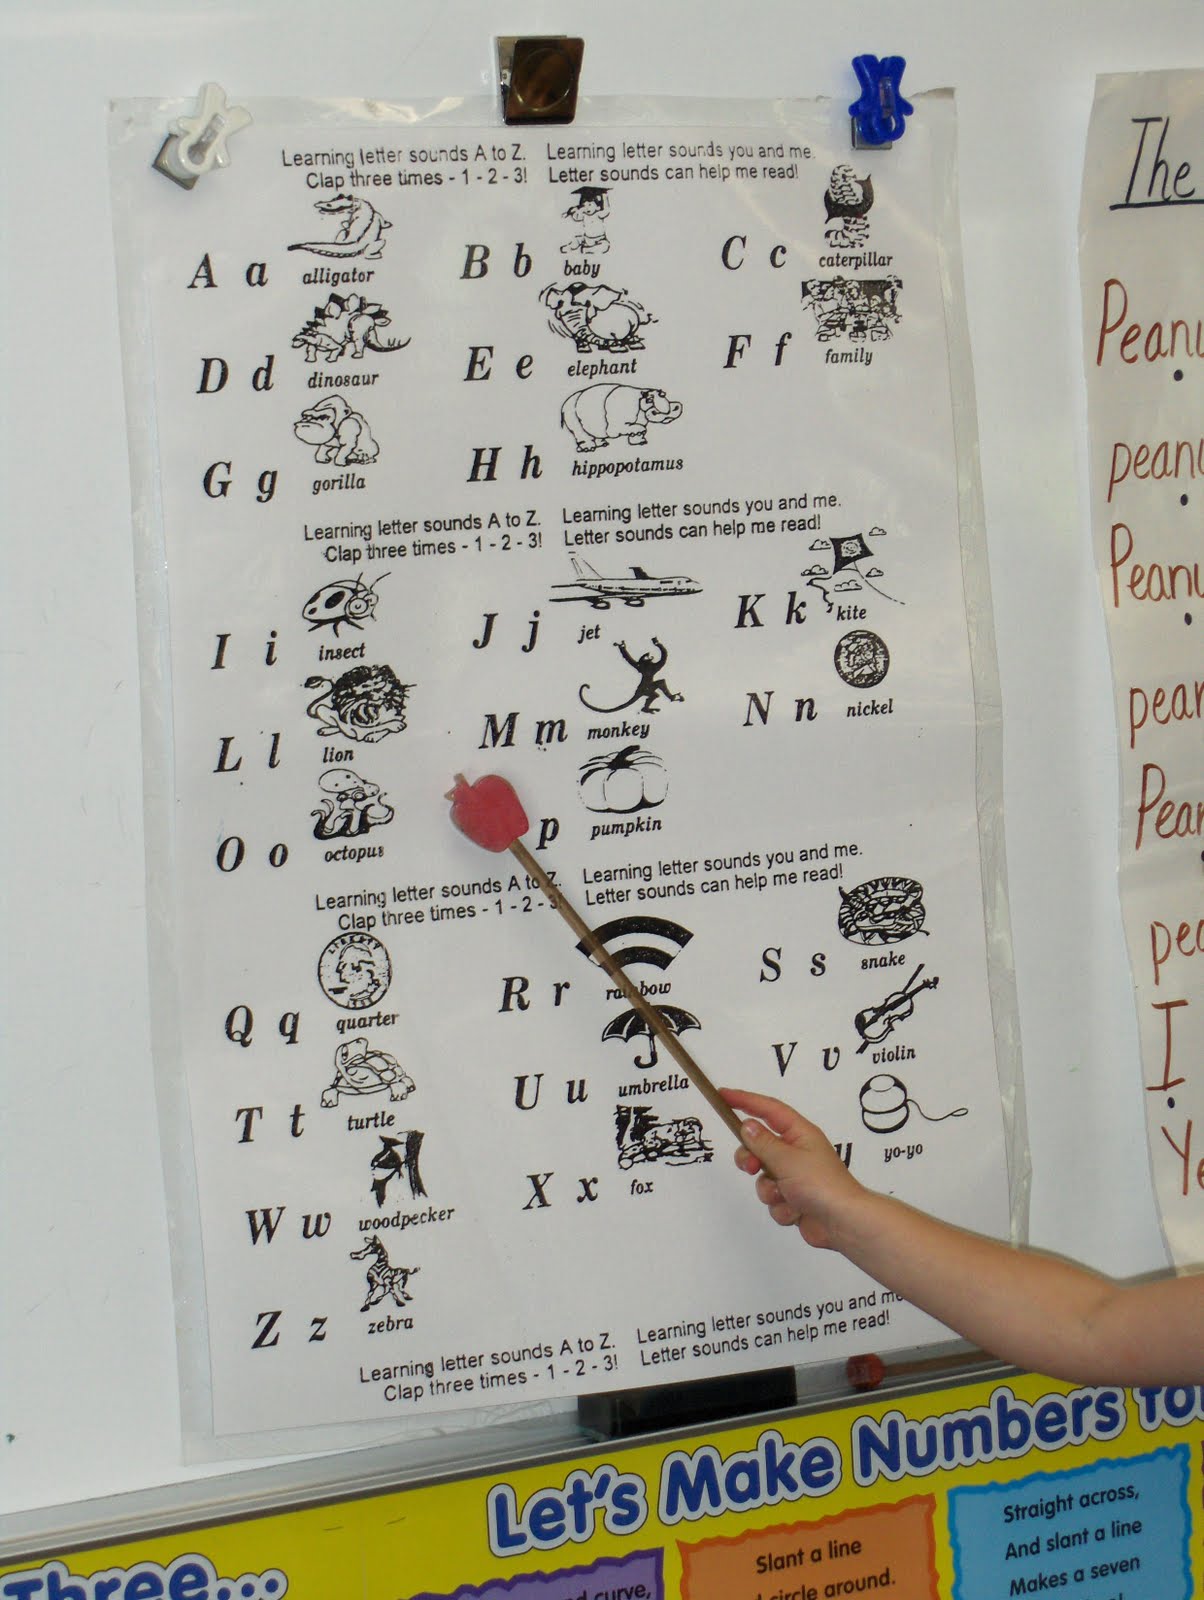 Learning letter sounds A to Z. Learning letter sounds you and me.
Clap three times - 1 - 2 - 3! Letter sounds can help me read!
A a alligator B b baby C c caterpillar
D d dinosaur E e elephant F f family
G g gorilla H h hippopotamus
Learning letter sounds A to Z. Learning letter sounds you and me.
Clap three times - 1 - 2 - 3! Letter sounds can help me read!
I i insect J j jet K k kite
L l lion M m monkey N n nickel
O o octopus p pumpkin
Learning letter sounds A to Z. Learning letter sounds you and me.
Clap three times - 1 - 2 - 3! Letter sounds can help me read!
LIBERTY
Q q quarter R r rainbow S s snake
T t turtle U u umbrella V v violin
W w woodpecker X x fox y yo-yo
Z z zebra
Learning letter sounds A to Z. Learning letter sounds you and me
Clap three times - 1 - 2 - 3! Letter sounds can help me read!
The
I
Let's Make Numbers
Three...
curve,
Slant a line
circle around.
Straight across,
And slant a line
Makes a seven